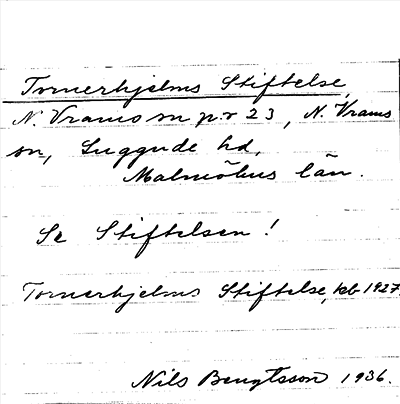 Tornerhjelms Stiftelse,
N. Vrams sn p.r 23, N. Vrams
sn, Luggude hd,
Malmöhus län.
Se Stiftelsen!
Tornerhjelms Stiftelse, kb 1927.
Nils Bengtsson 1936.